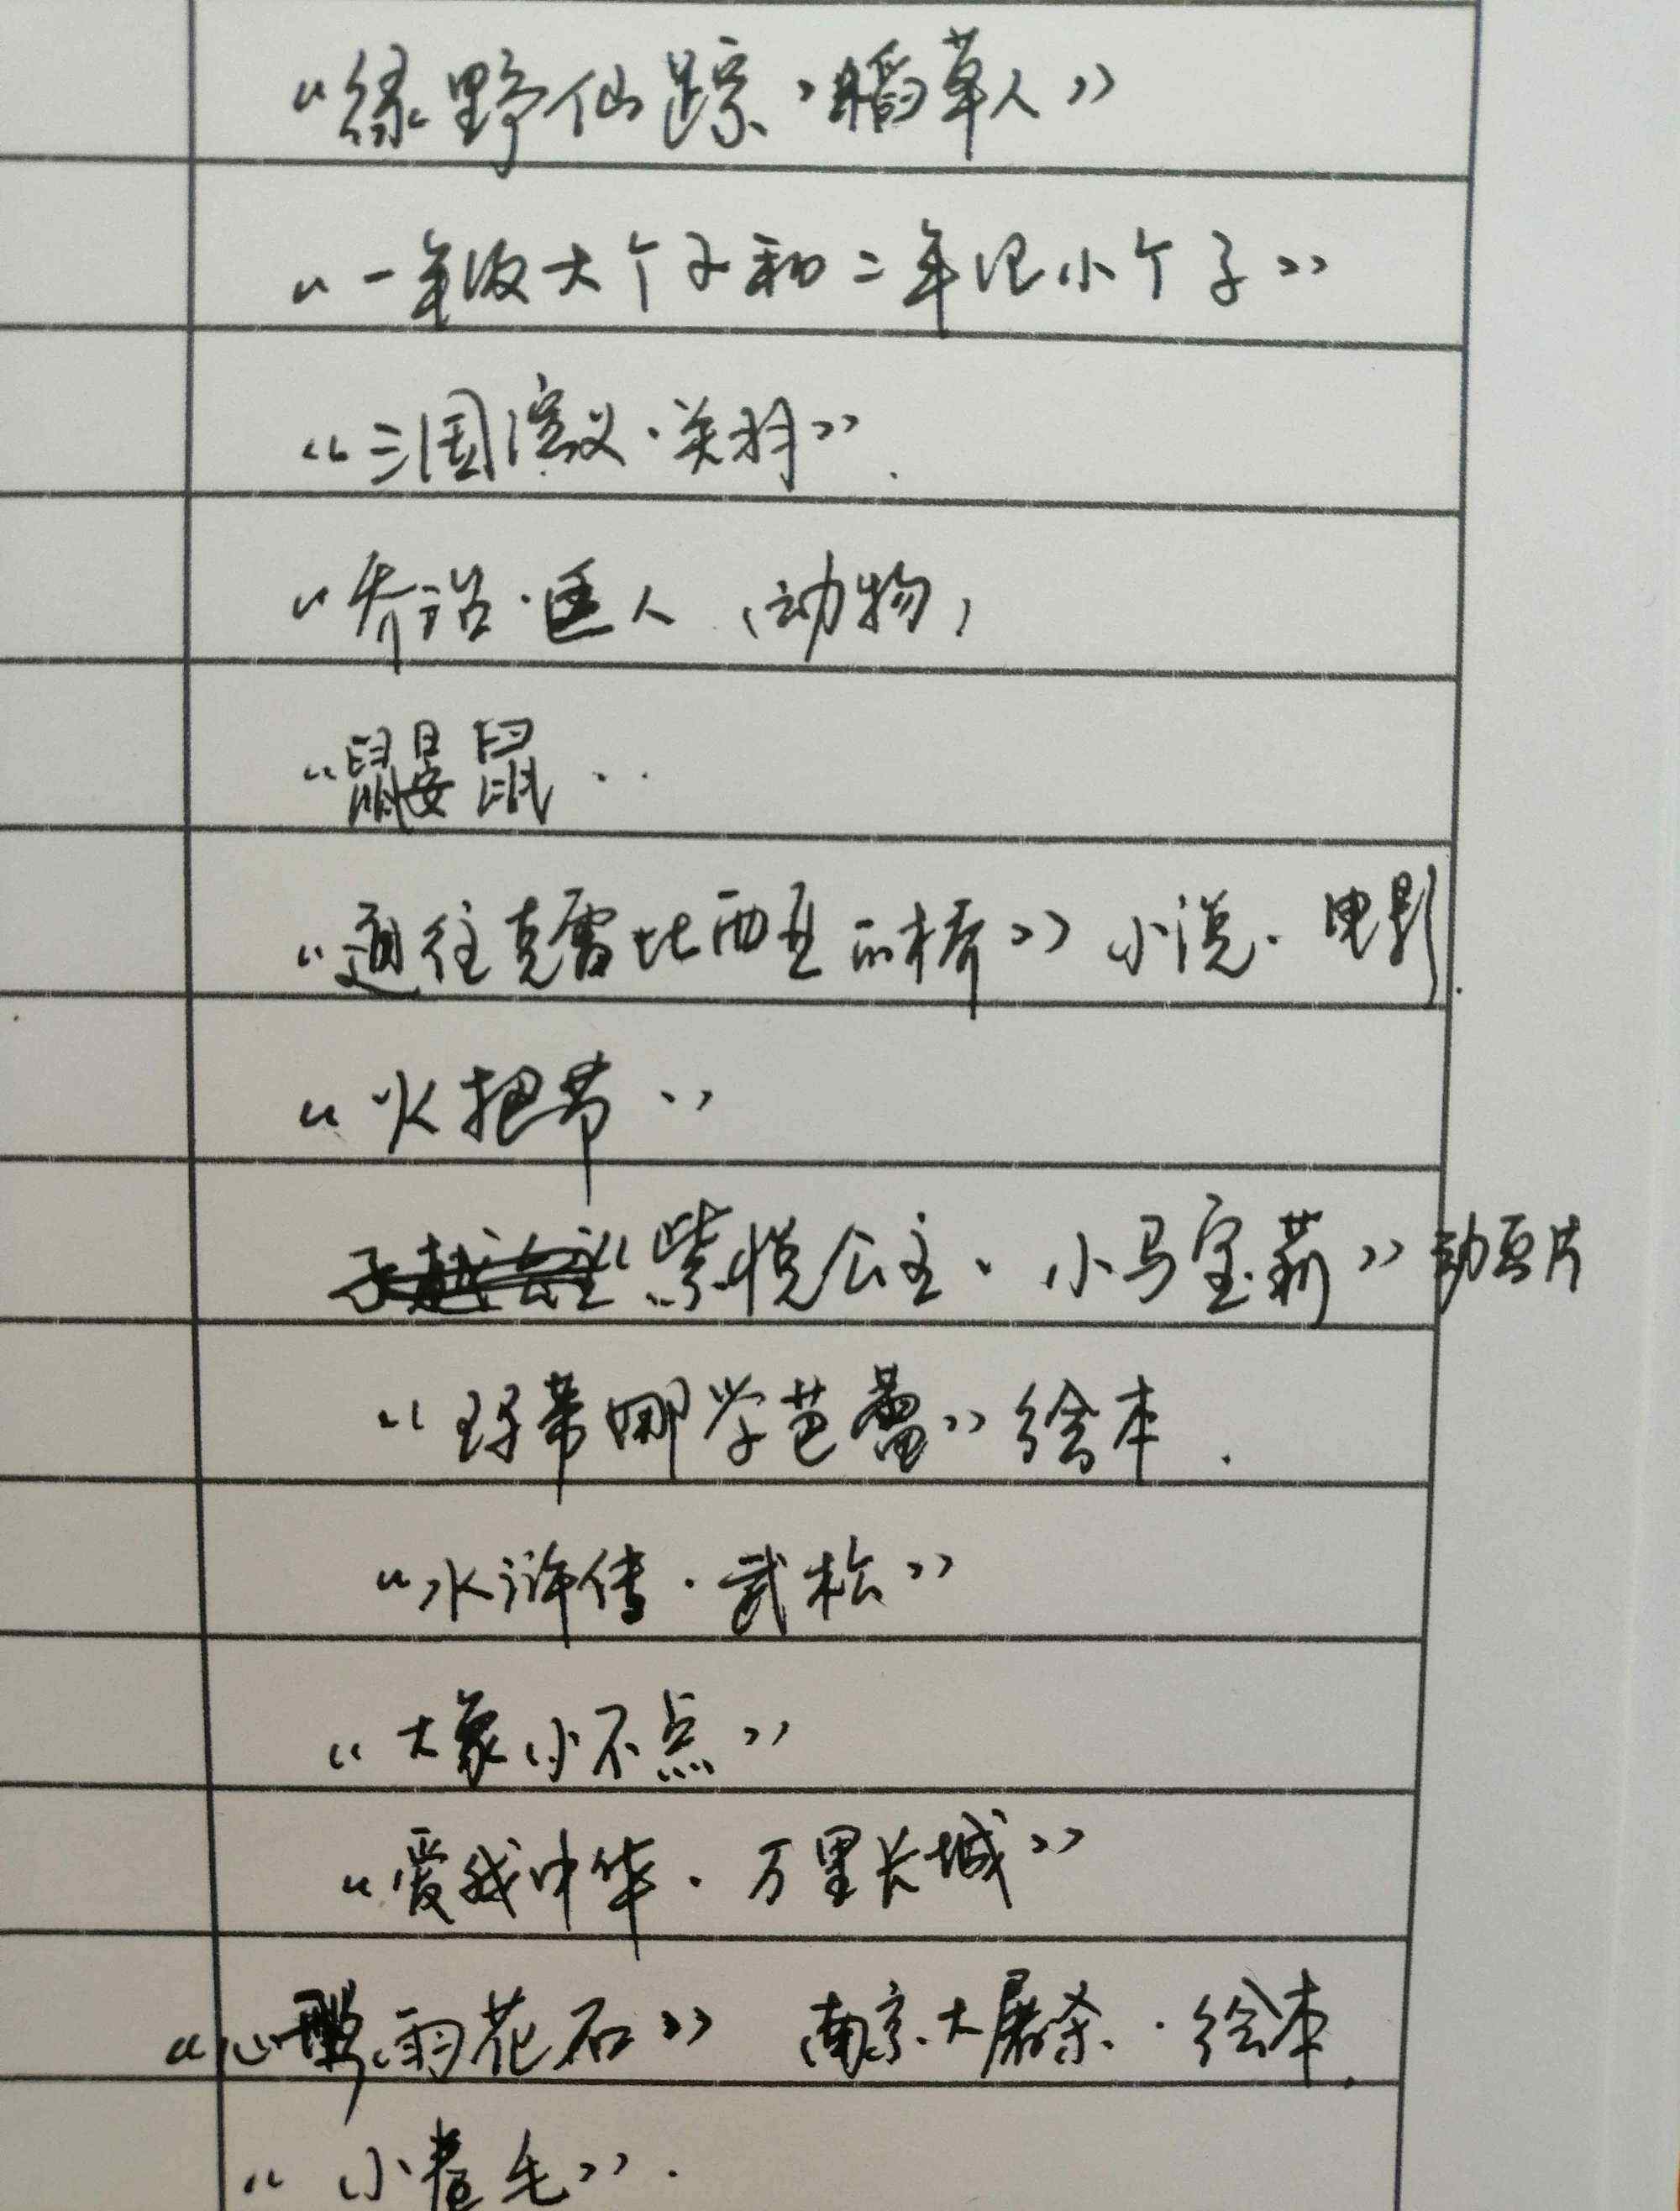 “绿野仙踪、稻草人”
“一年级大个子和二年级小个子”
“三国演义·关羽”.
“乔治·巨人(动物)
“鼹鼠..
“通往克雷比西亚的桥”小说.电影.
“火把节”
“紫悦公主、小马宝莉”动画片
“蒂娜学芭蕾”绘本.
“水浒传·武松”
“大象小不点”
“爱我中华.万里长城”
“心雨花石” 南京大屠杀.绘本.
“小卷毛”.